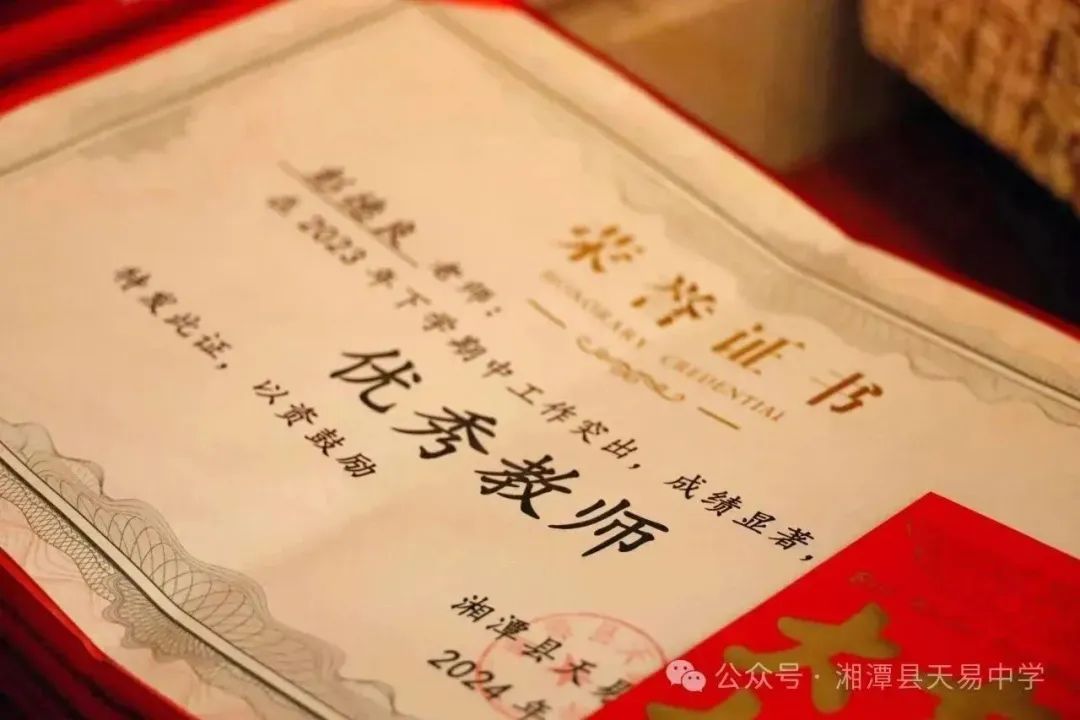 荣誉证书
HONORARY CREDENTIAL
彭德良 老师：
在2023年下学期中工作突出，成绩显著，
优秀教师
特发此证，以资鼓励
湘潭县天易
2024年
公众号·湘潭县天易中学